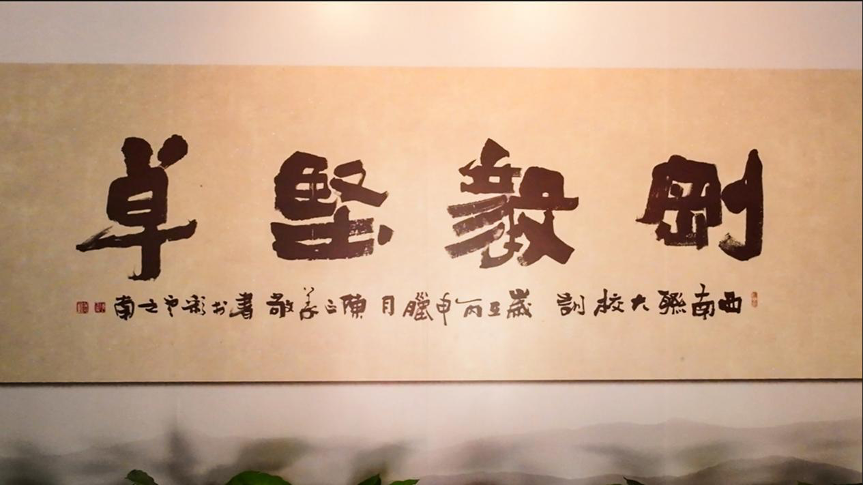 剛毅堅卓
西南聯大校訓 歲在丙申臘月陳立義敬書於彩雲之南